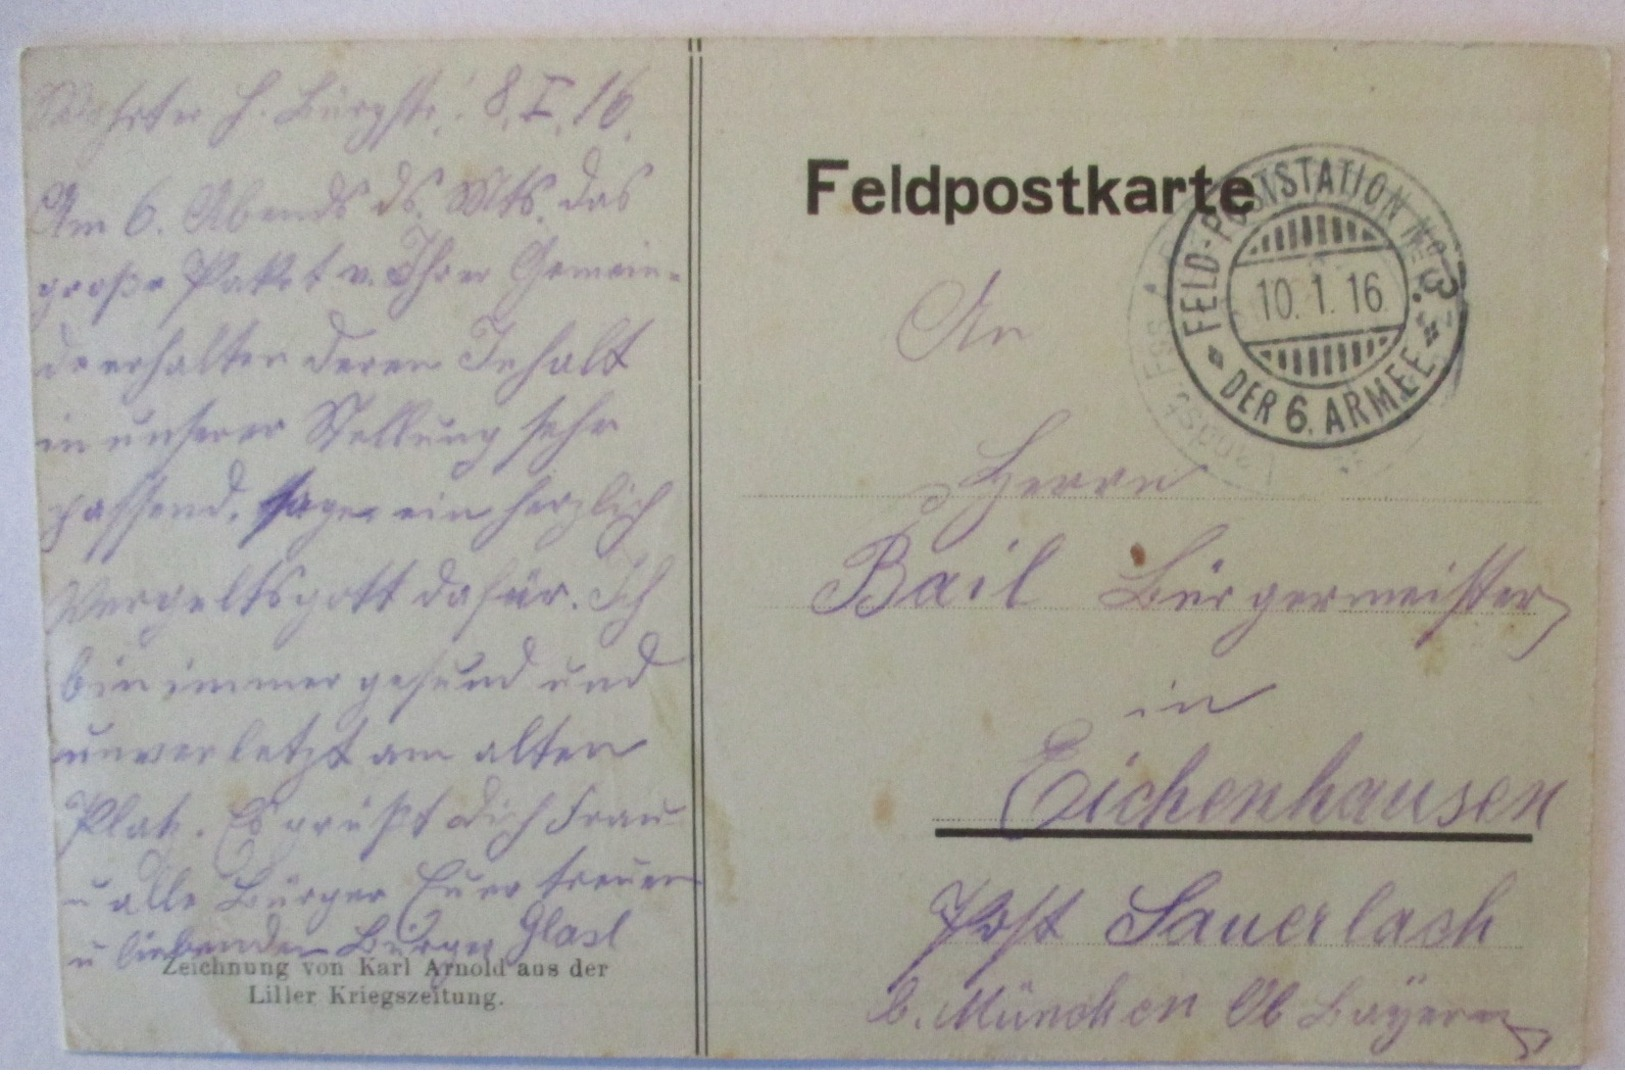 Werter H. Bürgstr.! 8. I. 16.
Am 6. Abends ds. Mts. das
große Paket v. Ihrer Gemein-
de erhalten deren Inhalt
in unserer Stellung sehr
passend, sage ein herzlich
Vergeltsgott dafür. Ich
bin immer gesund und
unverletzt am alten
Platz. Es grüßt dich Frau
u alle Bürger Euer treuer
u liebender Bürger Glasl
Zeichnung von Karl Arnold aus der
Liller Kriegszeitung.
Feldpostkarte
FELD-POSTSTATION No 3.
10. 1. 16
DER 6. ARMEE
An
Herrn
Bail Bürgermeister
in
Eichenhausen
Post Sauerlach
b. München Ob Bayern